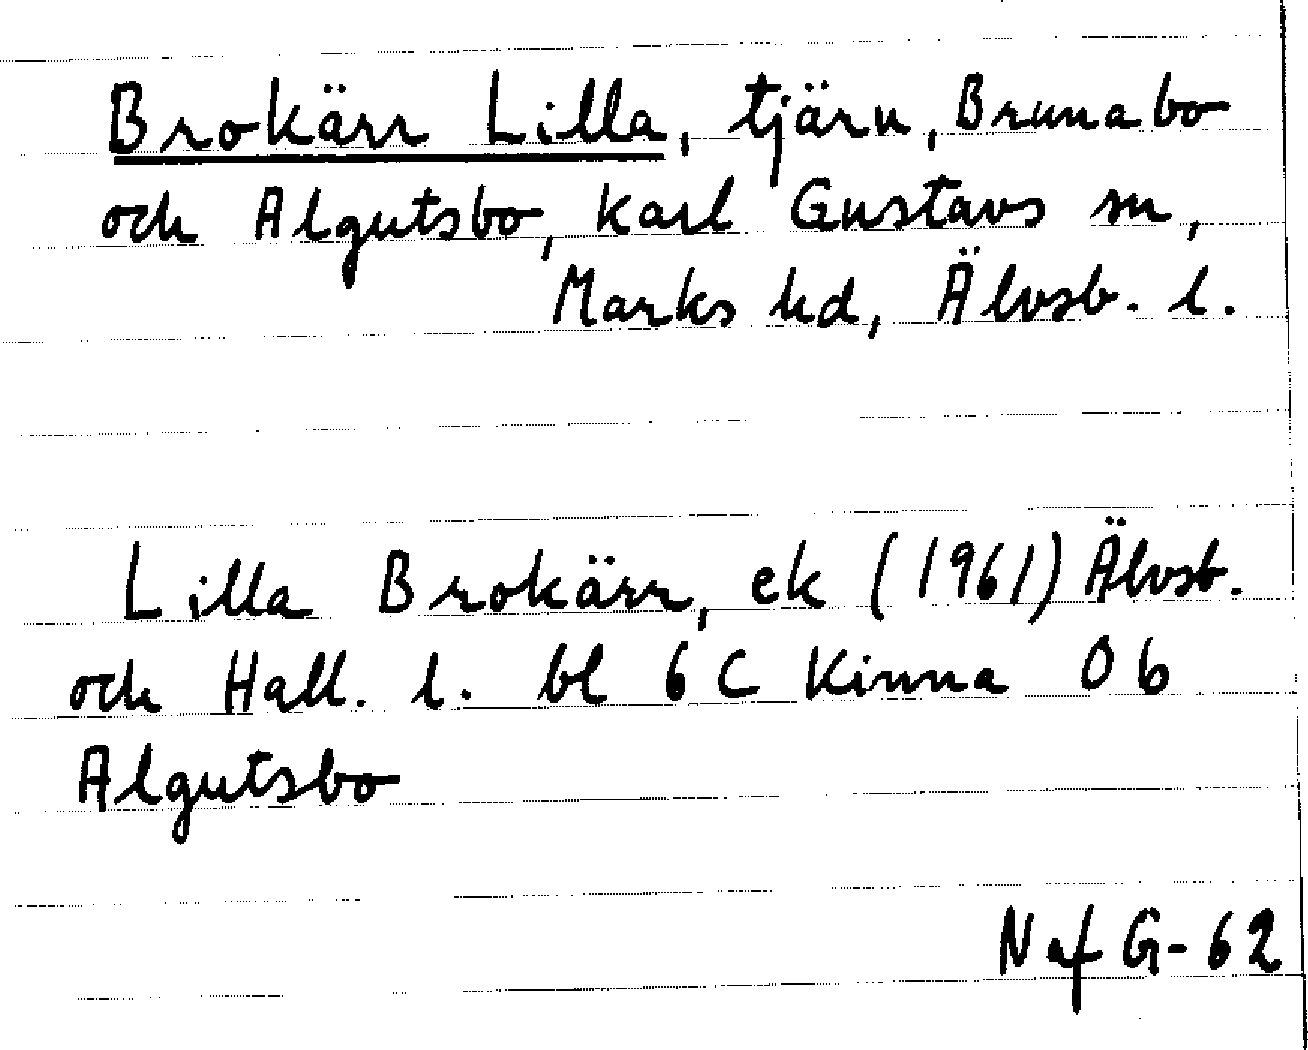 Brokärr Lilla, tjärn, Brunabo
och Algutsbo, Karl Gustavs sn,
Marks hd, Älvsb. l.
Lilla Brokärr, ek (1961) Älvsb.
och Hall. l. bl 6 C Kinna 0 b
Algutsbo
N af G-62